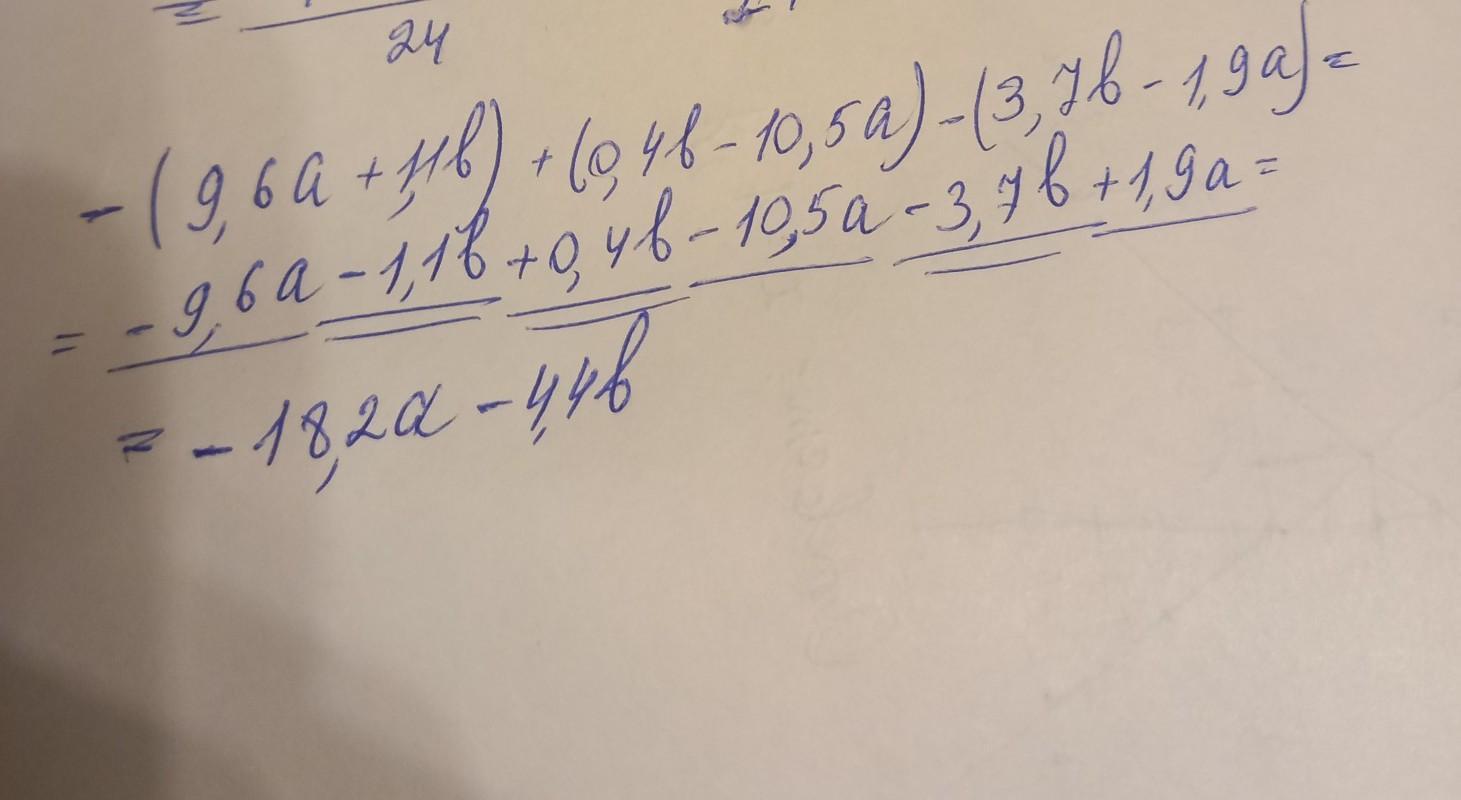 =
24
-(9,6a+1,1b)+(0,4b-10,5a)-(3,7b-1,9a)=
=-9,6a-1,1b+0,4b-10,5a-3,7b+1,9a=
=-18,2a-4,4b